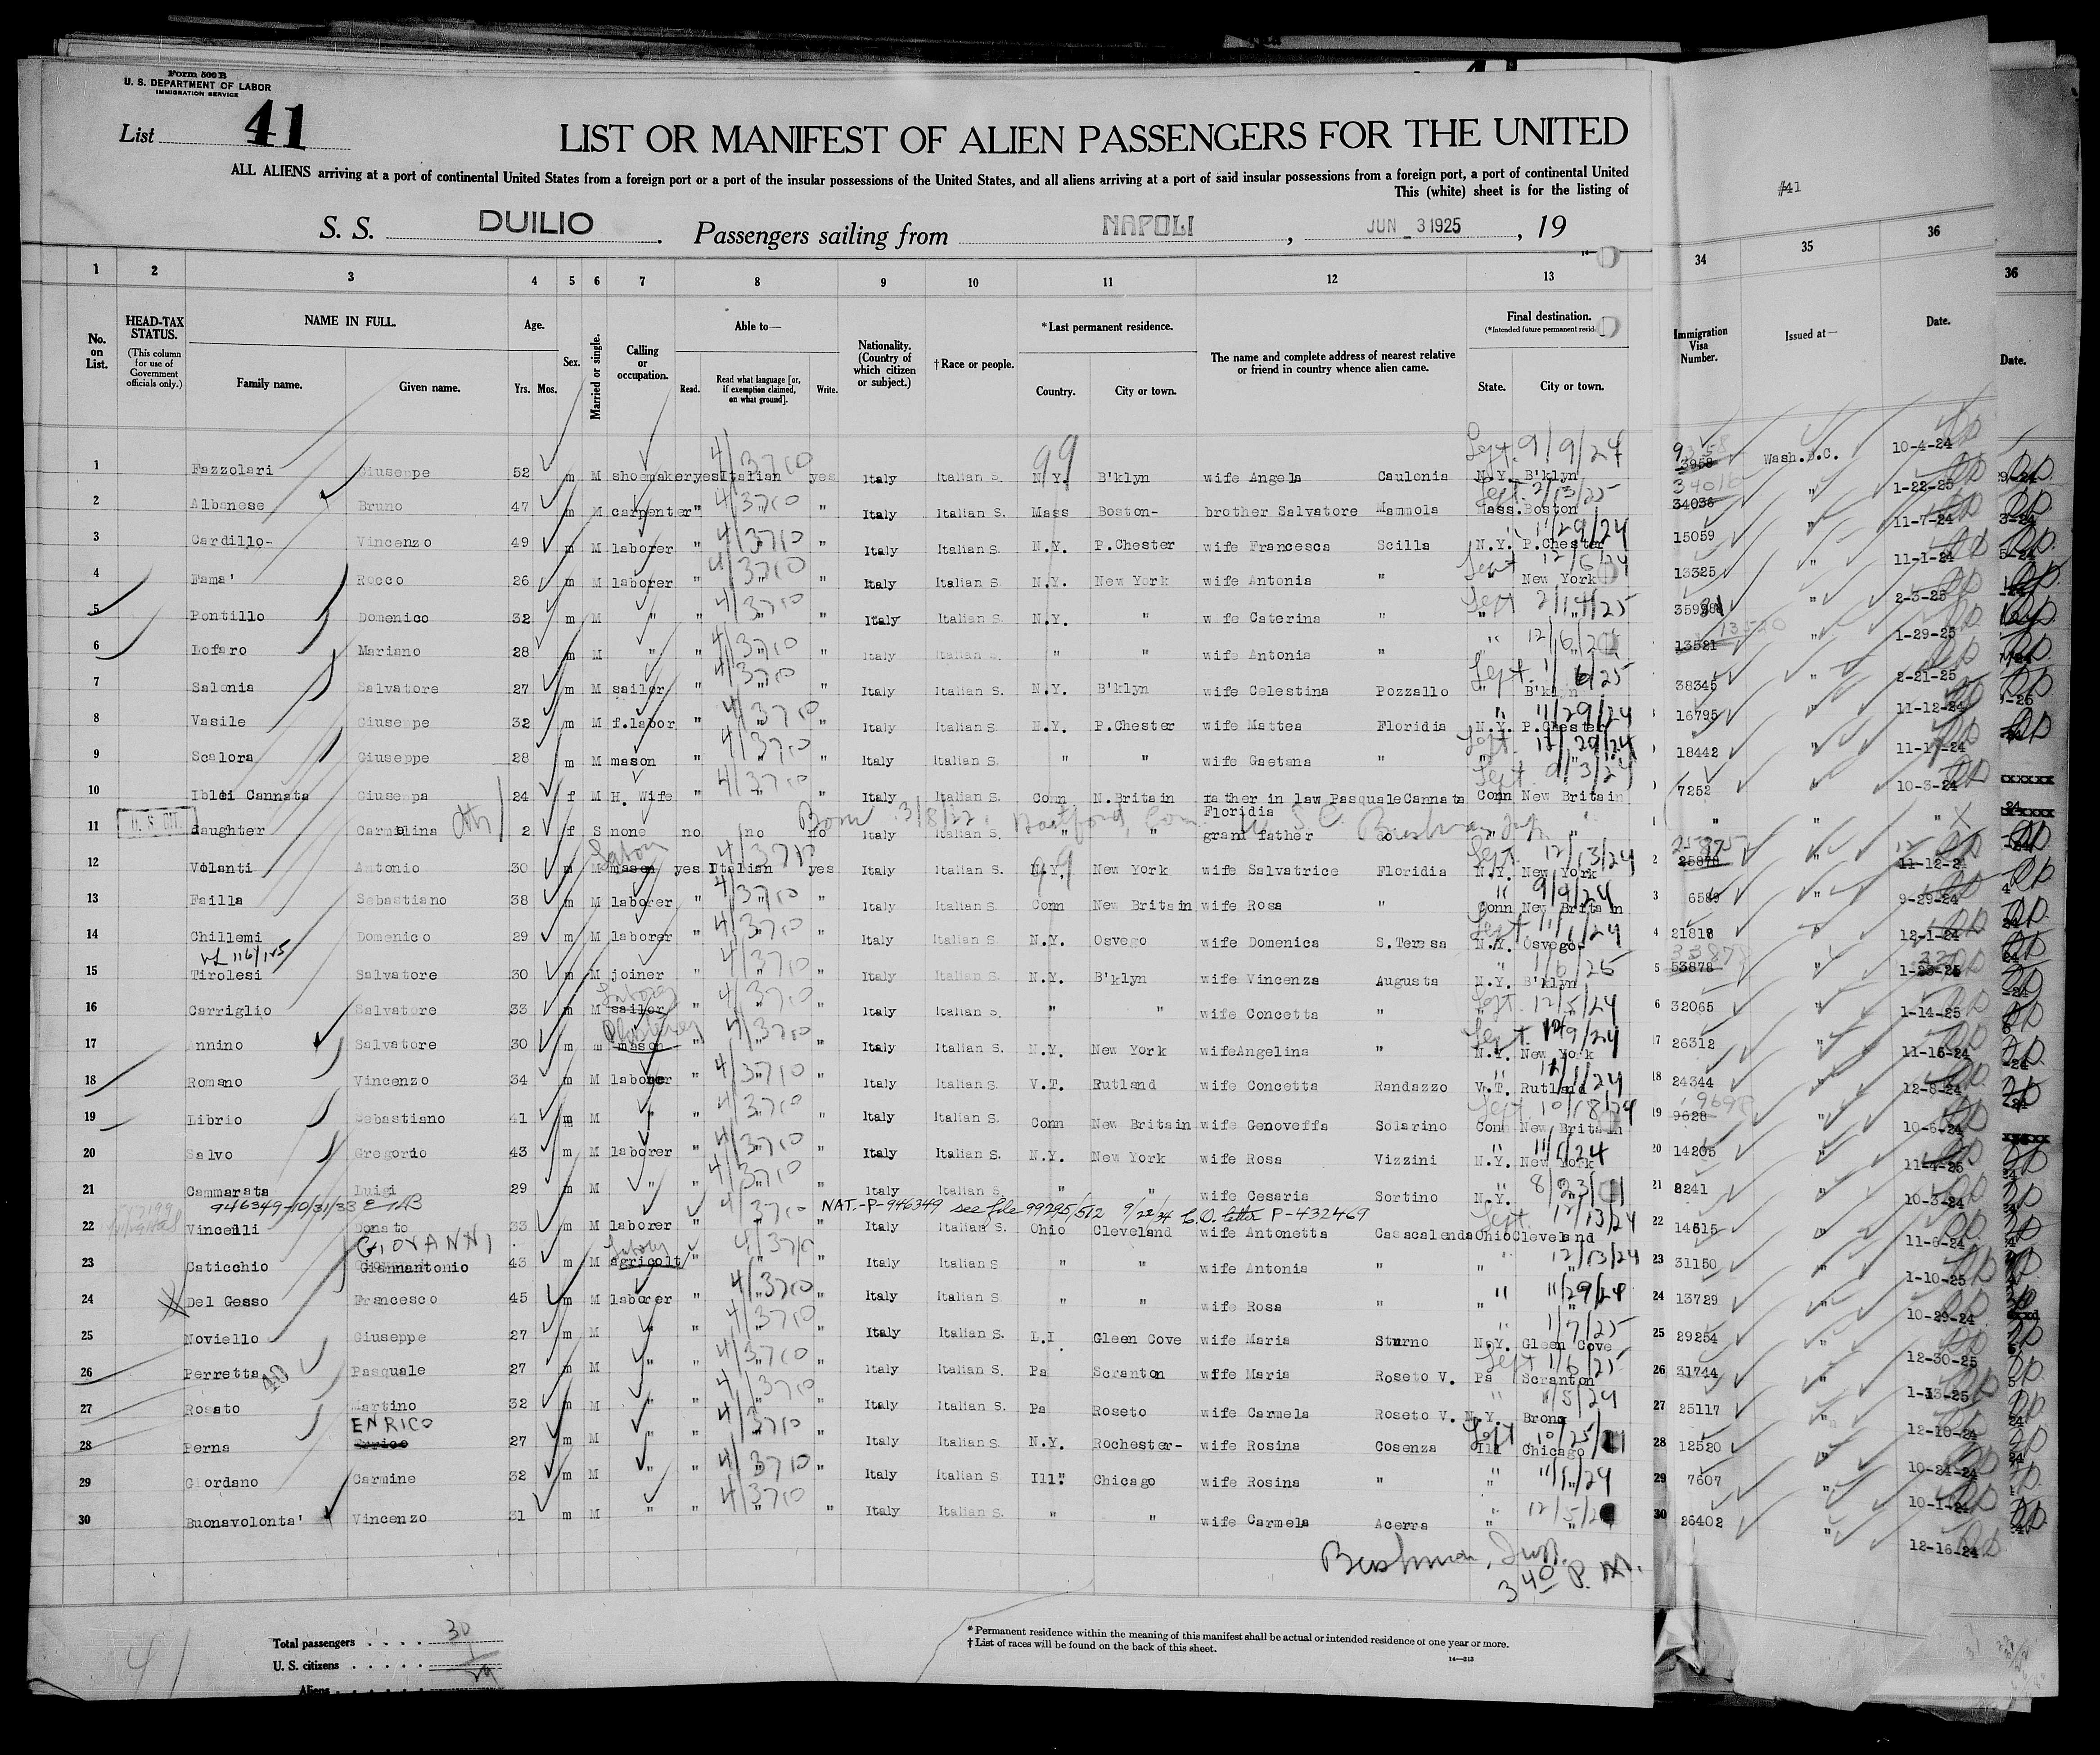 Form 500 B
U. S. DEPARTMENT OF LABOR
IMMIGRATION SERVICE
List 41
LIST OR MANIFEST OF ALIEN PASSENGERS FOR THE UNITED
ALL ALIENS arriving at a port of continental United States from a foreign port or a port of the insular possessions of the United States, and all aliens arriving at a port of said insular possessions from a foreign port, a port of continental United
This (white) sheet is for the listing of
#41
S. S. DUILIO. Passengers sailing from NAPOLI, JUN 3 1925, 19
1 2 3 4 5 6 7 8 9 10 11 12 13 34 35 36 36
No. on List.
HEAD-TAX STATUS.
(This column for use of Government officials only.)
NAME IN FULL.
Family name. Given name.
Age.
Yrs. Mos.
Sex.
Married or single.
Calling or occupation.
Able to—
Read. Read what language [or, if exemption claimed, on what ground]. Write.
Nationality. (Country of which citizen or subject.)
† Race or people.
*Last permanent residence.
Country. City or town.
The name and complete address of nearest relative or friend in country whence alien came.
Final destination.
(*Intended future permanent
State. City or town.
Immigration Visa Number.
Issued at—
Date.
Date.
Sept. 9/9/24
1 Fazzolari Giuseppe 52 m M shoemaker yes Italian yes Italy Italian S. N.Y. B'klyn wife Angela Caulonia N.Y. B'klyn 3958 Wash.D.C. 10-4-24
Sept. 2/13/25
2 Albanese Bruno 47 m M carpenter " " " Italy Italian S. Mass Boston- brother Salvatore Mammola Mass. Boston 34036 " 1-22-25
" 11/29/24
3 Cardillo- Vincenzo 49 m M laborer " " " Italy Italian S. N.Y. P.Chester wife Francesca Scilla N.Y. P.Chester 15059 " 11-7-24
4 Fama' Rocco 26 m M laborer " " " Italy Italian S. N.Y. New York wife Antonia " " New York 13325 " 11-1-24
Sept 2/14/25
5 Pontillo Domenico 32 m M " " " " Italy Italian S. N.Y. " wife Caterina " " " " 2-3-25
6 Lofaro Mariano 28 m M " " " " Italy Italian S. " " wife Antonia " " " 13521 " 1-29-25
Sept. 1/6/25
7 Salonia Salvatore 27 m M sailor " " " Italy Italian S. N.Y. B'klyn wife Celestina Pozzallo " B'klyn 38345 " 2-21-25
" 11/29/24
8 Vasile Giuseppe 32 m M f.labor " " " Italy Italian S. N.Y. P.Chester wife Mattea Floridia N.Y. P.Chester 16795 " 11-12-24
9 Scalora Giuseppe 28 m M mason " " " Italy Italian S. " " wife Gaetana " " " 18442 " 11-17-24
Sept. 9/3/24
10 Iblei Cannata Giuseppa 24 f M H. Wife " " " Italy Italian S. Conn N.Britain father in law Pasquale Cannata Conn New Britain 7252 " 10-3-24
Floridia
Born 3/8/22. Hartford, Conn.
11 U. S. CIT. daughter Carmelina 2 f S none no no no Italy Italian S. " " grand father do " " " "
Sept. 12/13/24
12 Volanti Antonio 30 m M mason yes Italian yes Italy Italian S. N.Y. New York wife Salvatrice Floridia N.Y. New York 25878 " 11-12-24
" 9/9/24
13 Failla Sebastiano 38 m M laborer " " " Italy Italian S. Conn New Britain wife Rosa " Conn New Britain 6589 " 9-29-24
14 Chillemi Domenico 29 m M laborer " " " Italy Italian S. N.Y. Osvego wife Domenica S.Teresa N.Y. Osvego- 21818 " 12-1-24
" 1/6/25
15 Tirolesi Salvatore 30 m M joiner " " " Italy Italian S. N.Y. B'klyn wife Vincenza Augusta N.Y. B'klyn 53878 " 1-23-25
Laborer Sept. 12/5/24
16 Carriglio Salvatore 33 m M sailor " " " Italy Italian S. " " wife Concetta " " " 32065 " 1-14-25
Plasterer
17 Annino Salvatore 30 m m mason " " " Italy Italian S. N.Y. New York wife Angelina " N.Y. New York 26312 " 11-15-24
" 12/1/24
18 Romano Vincenzo 34 m M laborer " " " Italy Italian S. V.T. Rutland wife Concetta Randazzo V.T. Rutland 24344 " 12-8-24
Sept. 10/18/24
19 Librio Sebastiano 41 m M " " " " Italy Italian S. Conn New Britain wife Genoveffa Solarino Conn New Britain 9628 " 10-6-24
20 Salvo Gregorio 43 m M laborer " " " Italy Italian S. N.Y. New York wife Rosa Vizzini N.Y. New York 14205 " 11-4-25
21 Cammarata Luigi 29 m M " " " Italy Italian S. " " wife Cesaria Sortino N.Y. " 8241 " 10-3-24
946349-10/31/33 NAT.-P-946349 see file 99295/512 9/22/34 C.O. letter P-432469
Sept. 12/13/24
22 Vincelli Donato 33 m M laborer " " " Italy Italian S. Ohio Cleveland wife Antonetta Casacalenda Ohio Cleveland 14615 " 11-6-24
GIOVANNI " 12/13/24
23 Caticchio Giannantonio 43 m M agricolt " " Italy Italian S " " wife Antonia " " " 31150 " 1-10-25
" 11/29/24
24 Del Gesso Francesco 45 m M laborer " " " Italy Italian S. " " wife Rosa " " " 13729 " 10-29-24
" 1/7/25
25 Noviello Giuseppe 27 m M " " " " Italy Italian S. L.I Gleen Cove wife Maria Sturno N.Y. Gleen Cove 29254 " 12-30-25
Sept 1/6/25
26 Perretta Pasquale 27 m M " " " " Italy Italian S. Pa Scranton wife Maria Roseto V. Pa Scranton 31744 " 1-13-25
27 Rosato Martino 32 m M " " " " Italy Italian S. Pa Roseto wife Carmela Roseto V. N.Y. Bronx 25117 " 12-10-24
ENRICO
28 Perna Enrico 27 m M " " " " Italy Italian S. N.Y. Rochester- wife Rosina Cosenza Ill Chicago 12520 " 10-24-24
29 Giordano Carmine 32 m M " " " " Italy Italian S. Ill. Chicago wife Rosina " " " 7607 " 10-1-24
30 Buonavolonta' Vincenzo 31 m M " " " " Italy Italian S. " " wife Carmela Acerra " " 26402 " 12-16-24
Bushman, Insp.
3 40 P. M.
Total passengers 30
U. S. citizens 1
Aliens 29
41
* Permanent residence within the meaning of this manifest shall be actual or intended residence of one year or more.
† List of races will be found on the back of this sheet.
14—213